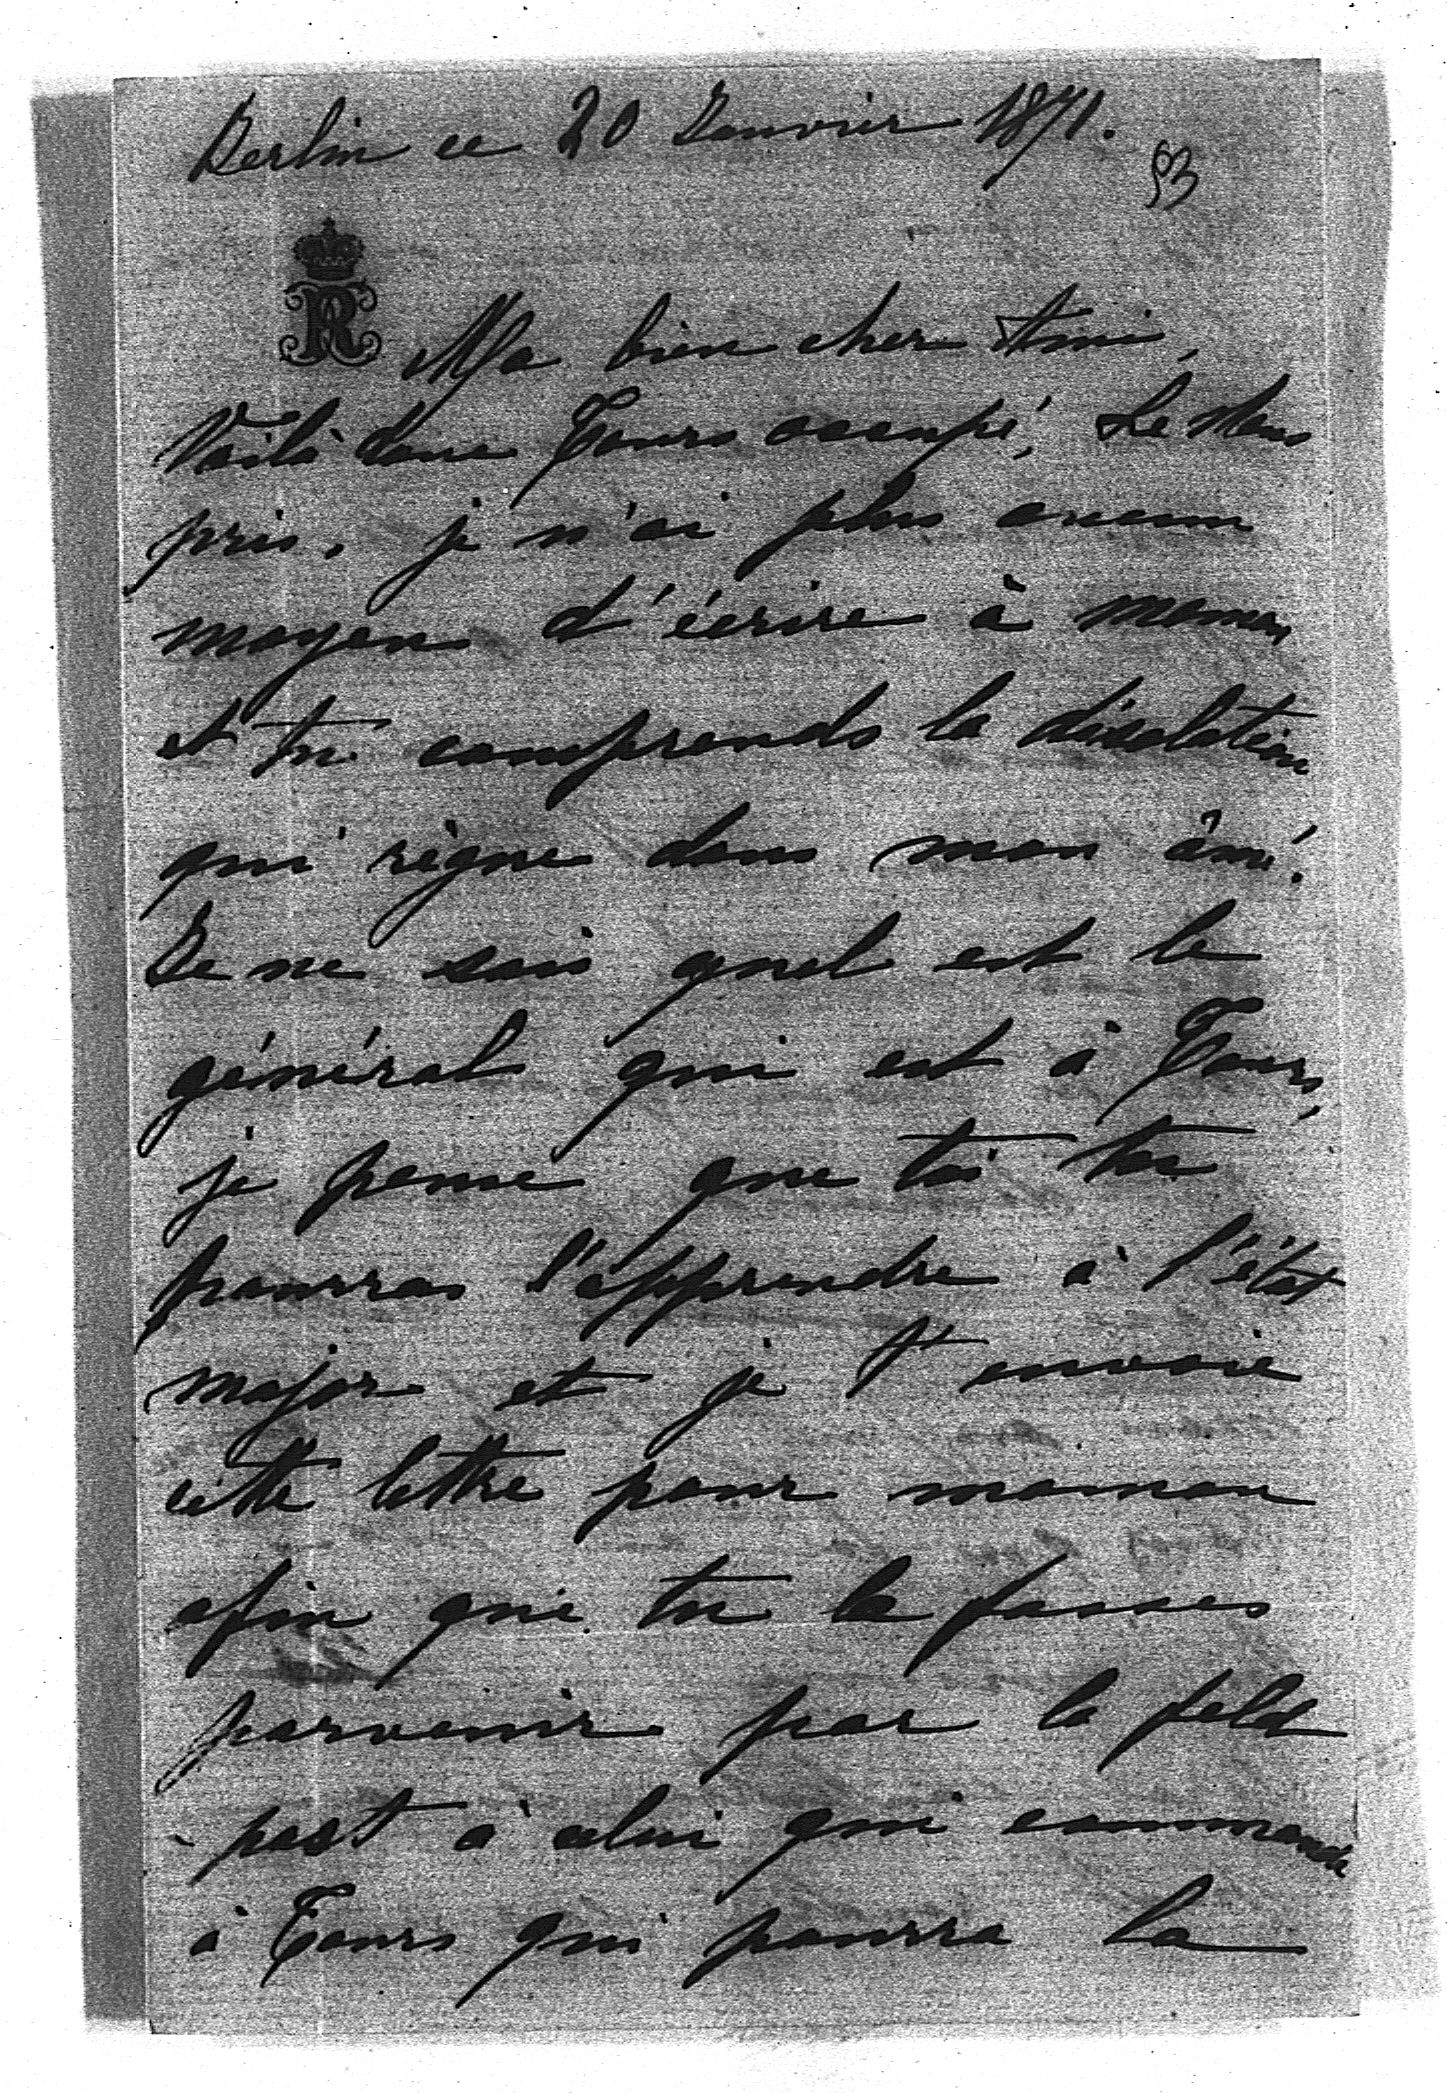 Berlin ce 20 Janvier 1871.
93
R
Mon bien cher Ami,
Voilà donc Tours occupé, Le Mans
pris, je n'ai plus aucun
moyen d'écrire à maman
et tu comprends la désolation
qui règne dans mon âme!
Je ne sais quel est le
général qui est à Tours,
je pense que toi tu
pourras l'apprendre à l'état
major et je t'envoie
cette lettre pour maman
afin que tu la fasses
parvenir par la feld
-post à celui qui commande
à Tours qui pourra la